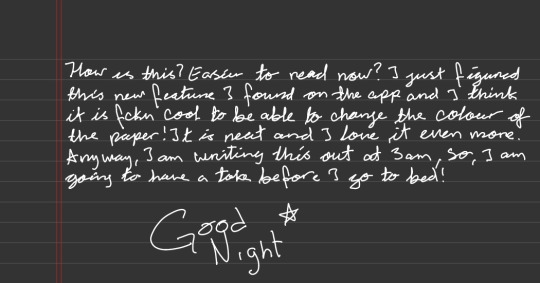 How is this? Easier to read now? I just figured
this new feature I found on the app and I think
it is fckn cool to be able to change the colour of
the paper! It is neat and I love it even more.
Anyway, I am writing this out at 3am, so, I am
going to have a toke before I go to bed!
Good
Night